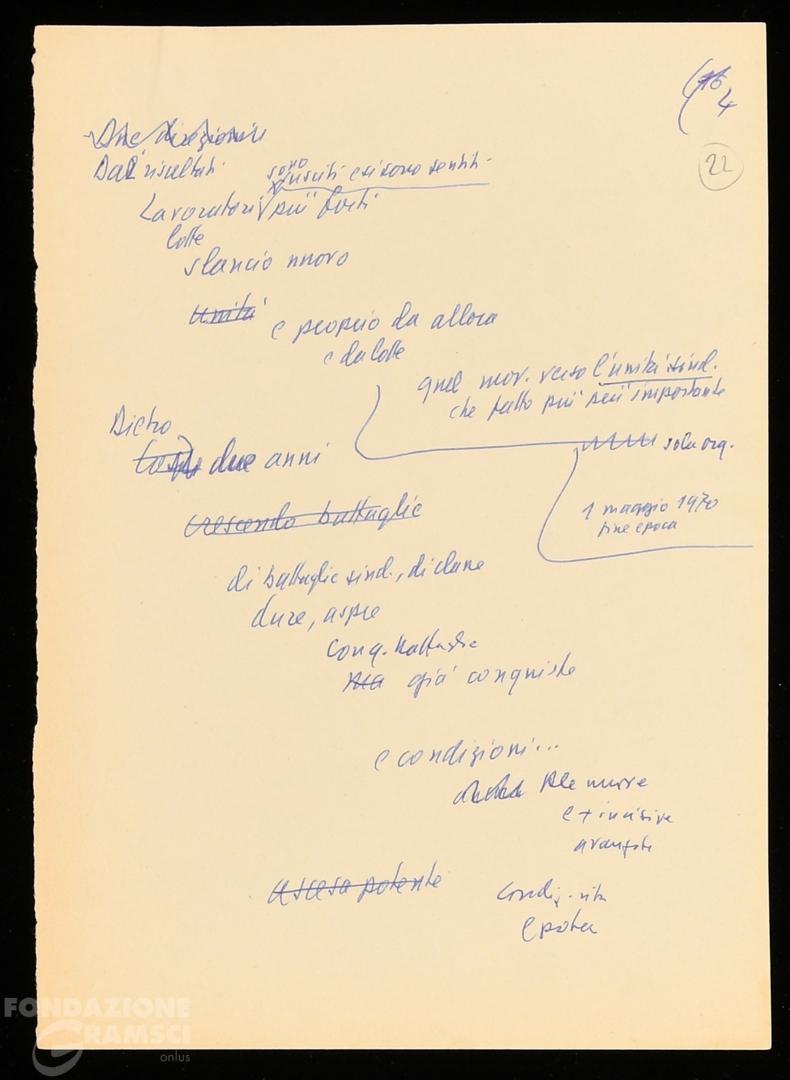 4
22
Due direzioni
Dai risultati
sono usciti e si sono sentiti
Lavoratori più forti
lotte
slancio nuovo
unità
e proprio da allora
e da lotte
quel mov. verso l'unità sind.
che fatto più più importante
sola org.
1 maggio 1970
fine epoca
Dietro
due anni
crescendo battaglie
di battaglie sind., di classe
dure, aspre
conq. battaglie
ma già conquiste
e condizioni...
nuove
e + incisive
avanzate
ascesa potente
condiz. vita
e potere
FONDAZIONE
GRAMSCI
onlus